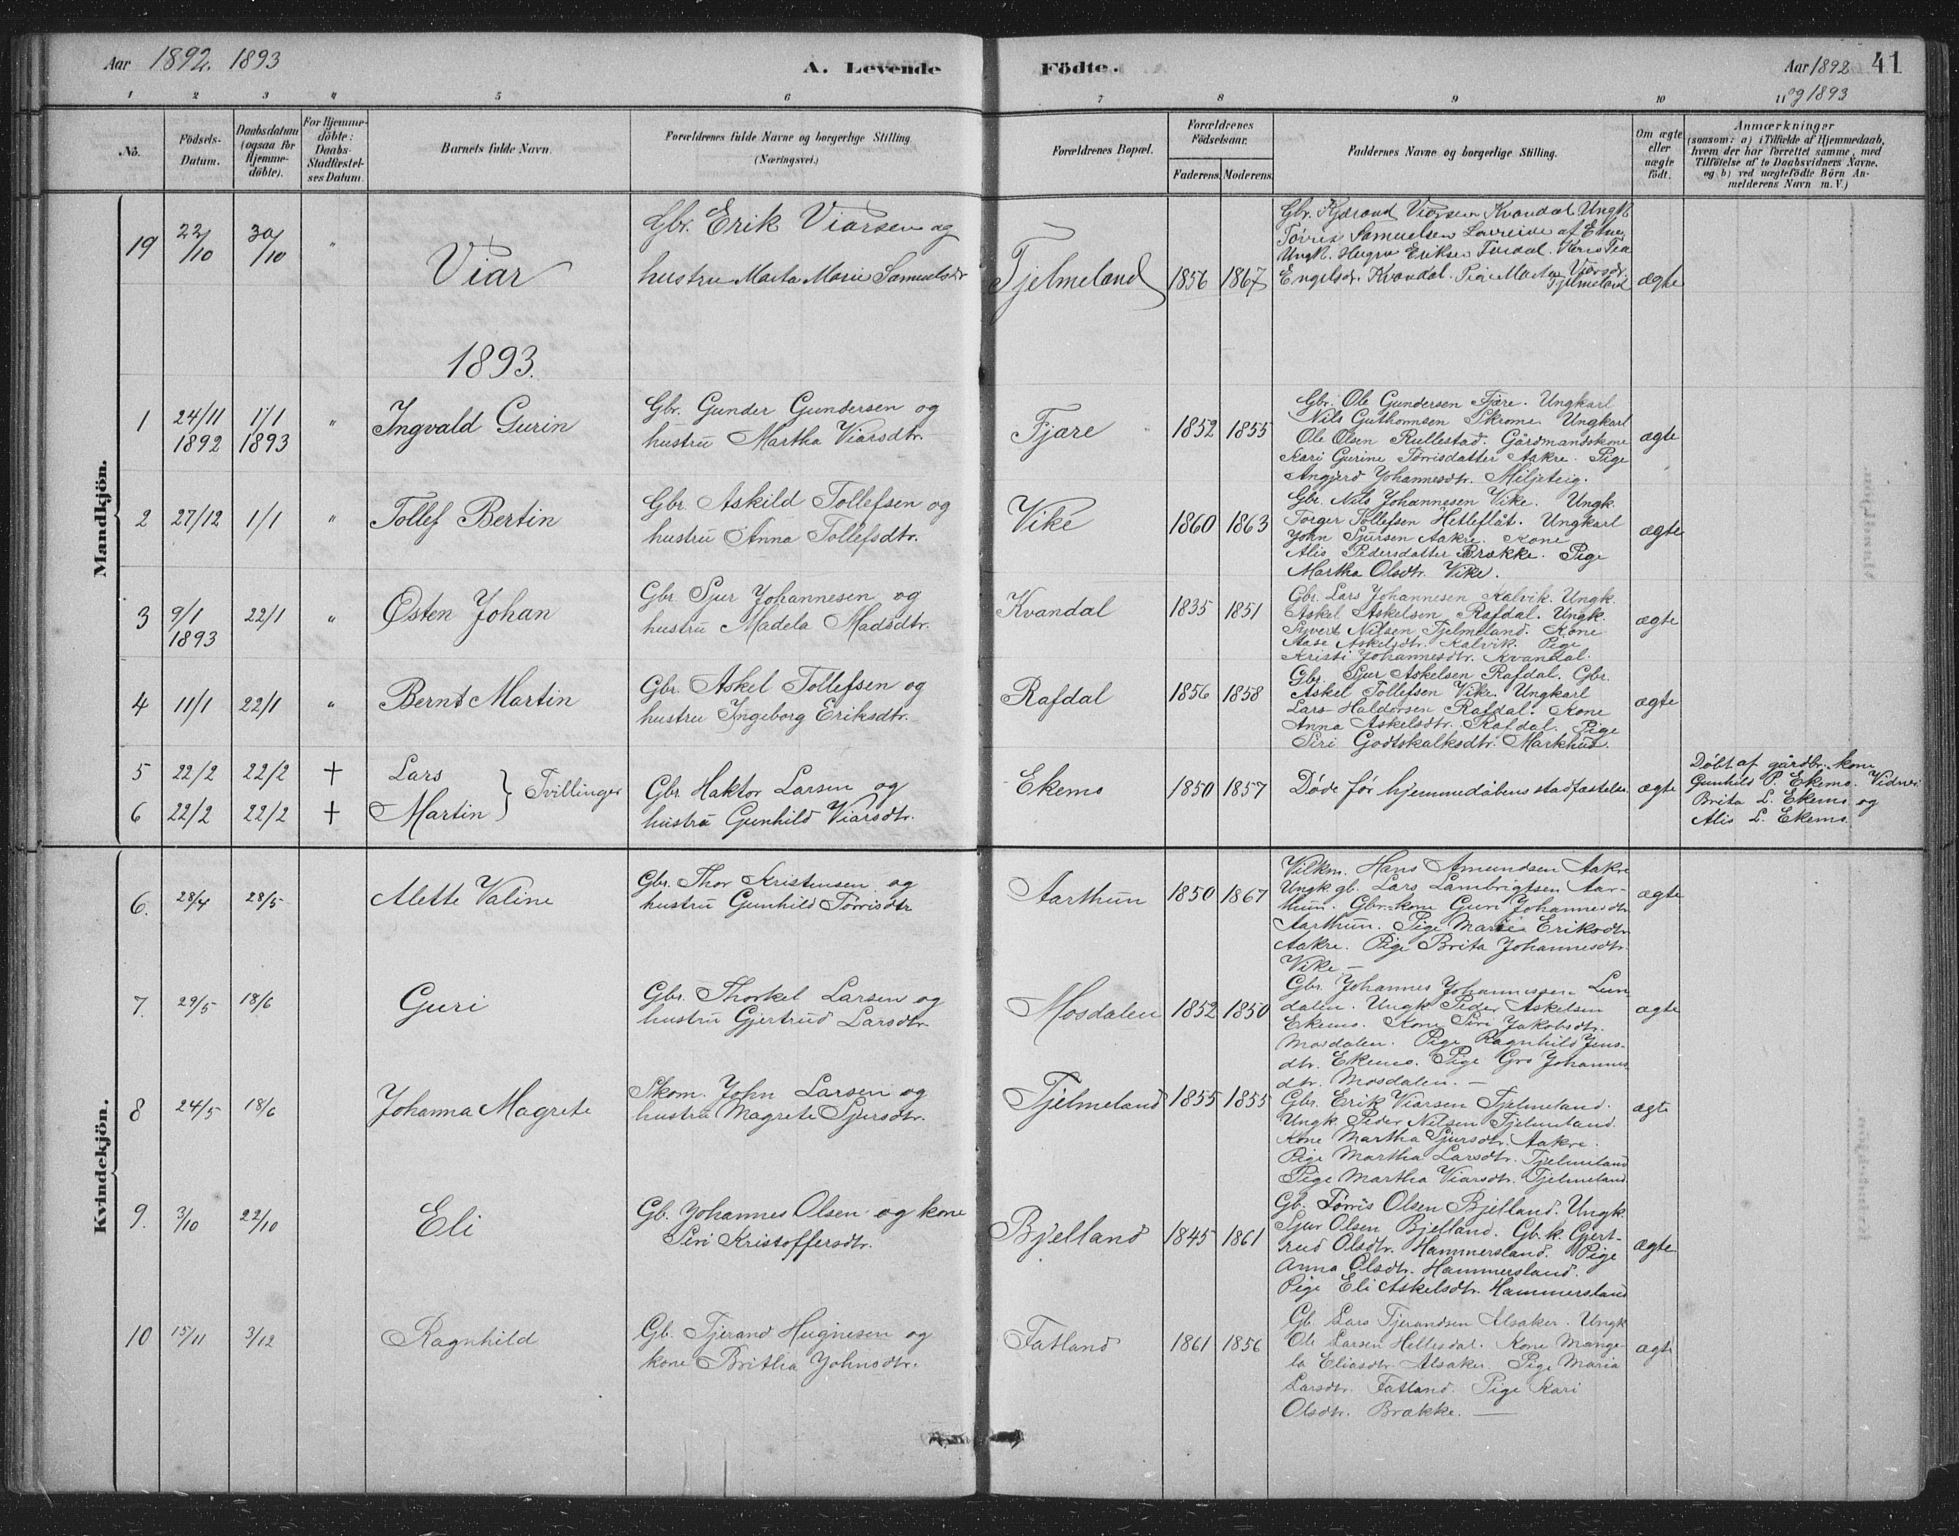 Aar 1892. 1893
A. Levende
Födte.
Aar 1892 41
og 1893
1 2 3 4 5 6 7 8 9 10 11
No.
Födsels-
Datum.
Daabsdatum
(ogsaa for
Hjemme-
döbte).
For Hjemme-
döbte:
Daabs-
Stadfæstel-
ses Datum.
Barnets fulde Navn.
Forældrenes fulde Navne og borgerlige Stilling
(Næringsvei.)
Forældrenes Bopæl.
Forældrenes
Födselsaar.
Faderens. Moderens.
Faddernes Navne og borgerlige Stilling.
Om ægte
eller
uægte
födt.
Anmærkninger
(saasom: a) i Tilfælde af Hjemmedaab,
hvem der har forrettet samme, med
Tilföielse af to Daabsvidners Navne,
og b) ved uægtefödte Börn An-
melderens Navn m. V.)
Mandkjön.
19 22/10 30/10 "
Viar
Gbr. Erik Viarsen og
hustru Marta Marie Samuelsdr
Tjelmeland
1856 1867
Gbr. Kjærand Viarsen Kvandal Ungk.
Tørres Samuelsen Lavreide af Etne,
Ungk. Hugni Eriksen
Engelsdr. Kvandal. Pige Marta Viarsdr.
Tjelmeland
ægte
1893.
1 24/11 1892 1/1 1893 "
Ingvald Gurin
Gbr. Gunder Gundersen og
hustru Martha Viarsdtr.
Fjære
1852 1855
Gbr. Ole Gundersen Fjære. Ungkarl
Nils Guthormsen Skromo. Ungkarl
Ole Olsen Rullestad. Gårdmandskone
Kari Gurine Tørrisdatter Aakre. Pige
Angjerd Johannesdtr. Miljeteig.
ægte
2 27/12 1/1 "
Tollef Bertin
Gbr. Askild Tollefsen og
hustru Anna Tollefsdtr.
Vike
1860 1863
Gbr. Nils Johannesen Vike. Ungk.
Torger Tollefsen Hetleflåt. Ungkarl
John Sjursen Aakre. Kone
Alis Pedersdatter Brække. Pige
Martha Olsdtr. Vike.
ægte
3 9/1 1893 22/1 "
Østen Johan
Gbr. Sjur Johannesen og
hustru Madela Madsdtr.
Kvandal
1835 1851
Gbr. Lars Johannesen Kalvik. Ungk.
Askel Askelsen Rafdal. Ungk.
Sjvert Nilsen Tjelmeland. Kone
Aase Askelsdtr. Kalvik. Pige
Kristi Johannesdtr. Kvandal.
ægte
4 11/1 22/1 "
Bernt Martin
Gbr. Askel Tollefsen og
hustru Ingeborg Eriksdtr.
Rafdal
1856 1858
Gbr. Sjur Askelsen Rafdal. Gbr.
Askel Tollefsen Vike. Ungkarl
Lars Haldorsen Rafdal. Kone
Anna Askelsdtr. Rafdal. Pige
Siri Godtskalksdtr. Markhus.
ægte
5 22/2 22/2 † Lars
6 22/2 22/2 † Martin
} Tvillinger
Gbr. Haktor Larsen og
hustru Gunhild Viarsdtr.
Ekemo
1850 1857
Døde før hjemmedåbens stadfæstelse
ægte
Døbt af gårdbr. kone
Gunhild P. Ekemo. Vidner
Brita L. Ekemo og
Alis L. Ekemo.
Kvindekjön.
6. 28/4 28/5
Alette Valine
Gbr. Thor Kristensen og
hustru Gunhild Tørrisdtr
Aarthun
1850 1867
Vilkm. Hans Amundsen Aakre
Ungk. gb. Lars Lambrigtsen Aar-
thun. Gbr. kone Guri Johannesdtr.
Aarthun. Pige Marie Eriksdtr.
Aakre. Pige Brita Johannesdtr.
Vike —
ægte
7. 29/5 18/6
Guri
Gbr. Thorkel Larsen og
hustru Gjertrud Larsdtr.
Mosdalen
1852 1850
Gbr. Johannes Johannessen Lun-
dalen. Ungk. Peder Askelsen
Ekemo. Kone Siri Jakobsdtr.
Mosdalen. Pige Ragnhild Jens-
dtr. Ekemo. Pige Gro Johannes
dtr. Mosdalen. —
ægte
8 24/5 18/6
Johanna Magrete
Skom. John Larsen og
hustru Magrete Sjursdtr.
Tjelmeland
1855 1855
Gbr. Erik Viarsen Tjelmeland.
Ungk. Peder Nilsen Tjelmeland.
Kone Martha Sjursdtr. Aakre.
Pige Martha Larsdtr. Tjelmeland
Pige Martha Viarsdtr. Tjelmeland
ægte
9. 3/10 22/10
Eli
Gb. Johannes Olsen og kone
Siri Kristoffersdtr.
Bjelland
1845 1861
Gb. Tørris Olsen Bjelland. Ungk
Sjur Olsen Bjelland. Gb. k. Gjert-
rud Olsdtr. Hammersland. Pige
Anna Olsdtr. Hammersland.
Pige Eli Askelsdtr. Hammersland
ægte
10 15/11 3/12
Ragnhild
Gb. Tjerand Hugnesen og
kone Britha Johnsdtr.
Fatland
1861 1856
Gb. Lars Tjerandsen Alsaker. Ungk
Ole Larsen Hellesdal. Kone Mange-
la Eliasdtr. Alsaker. Pige Maria
Larsdtr. Fatland. Pige Kari
Olsdtr. Brække. —
ægte